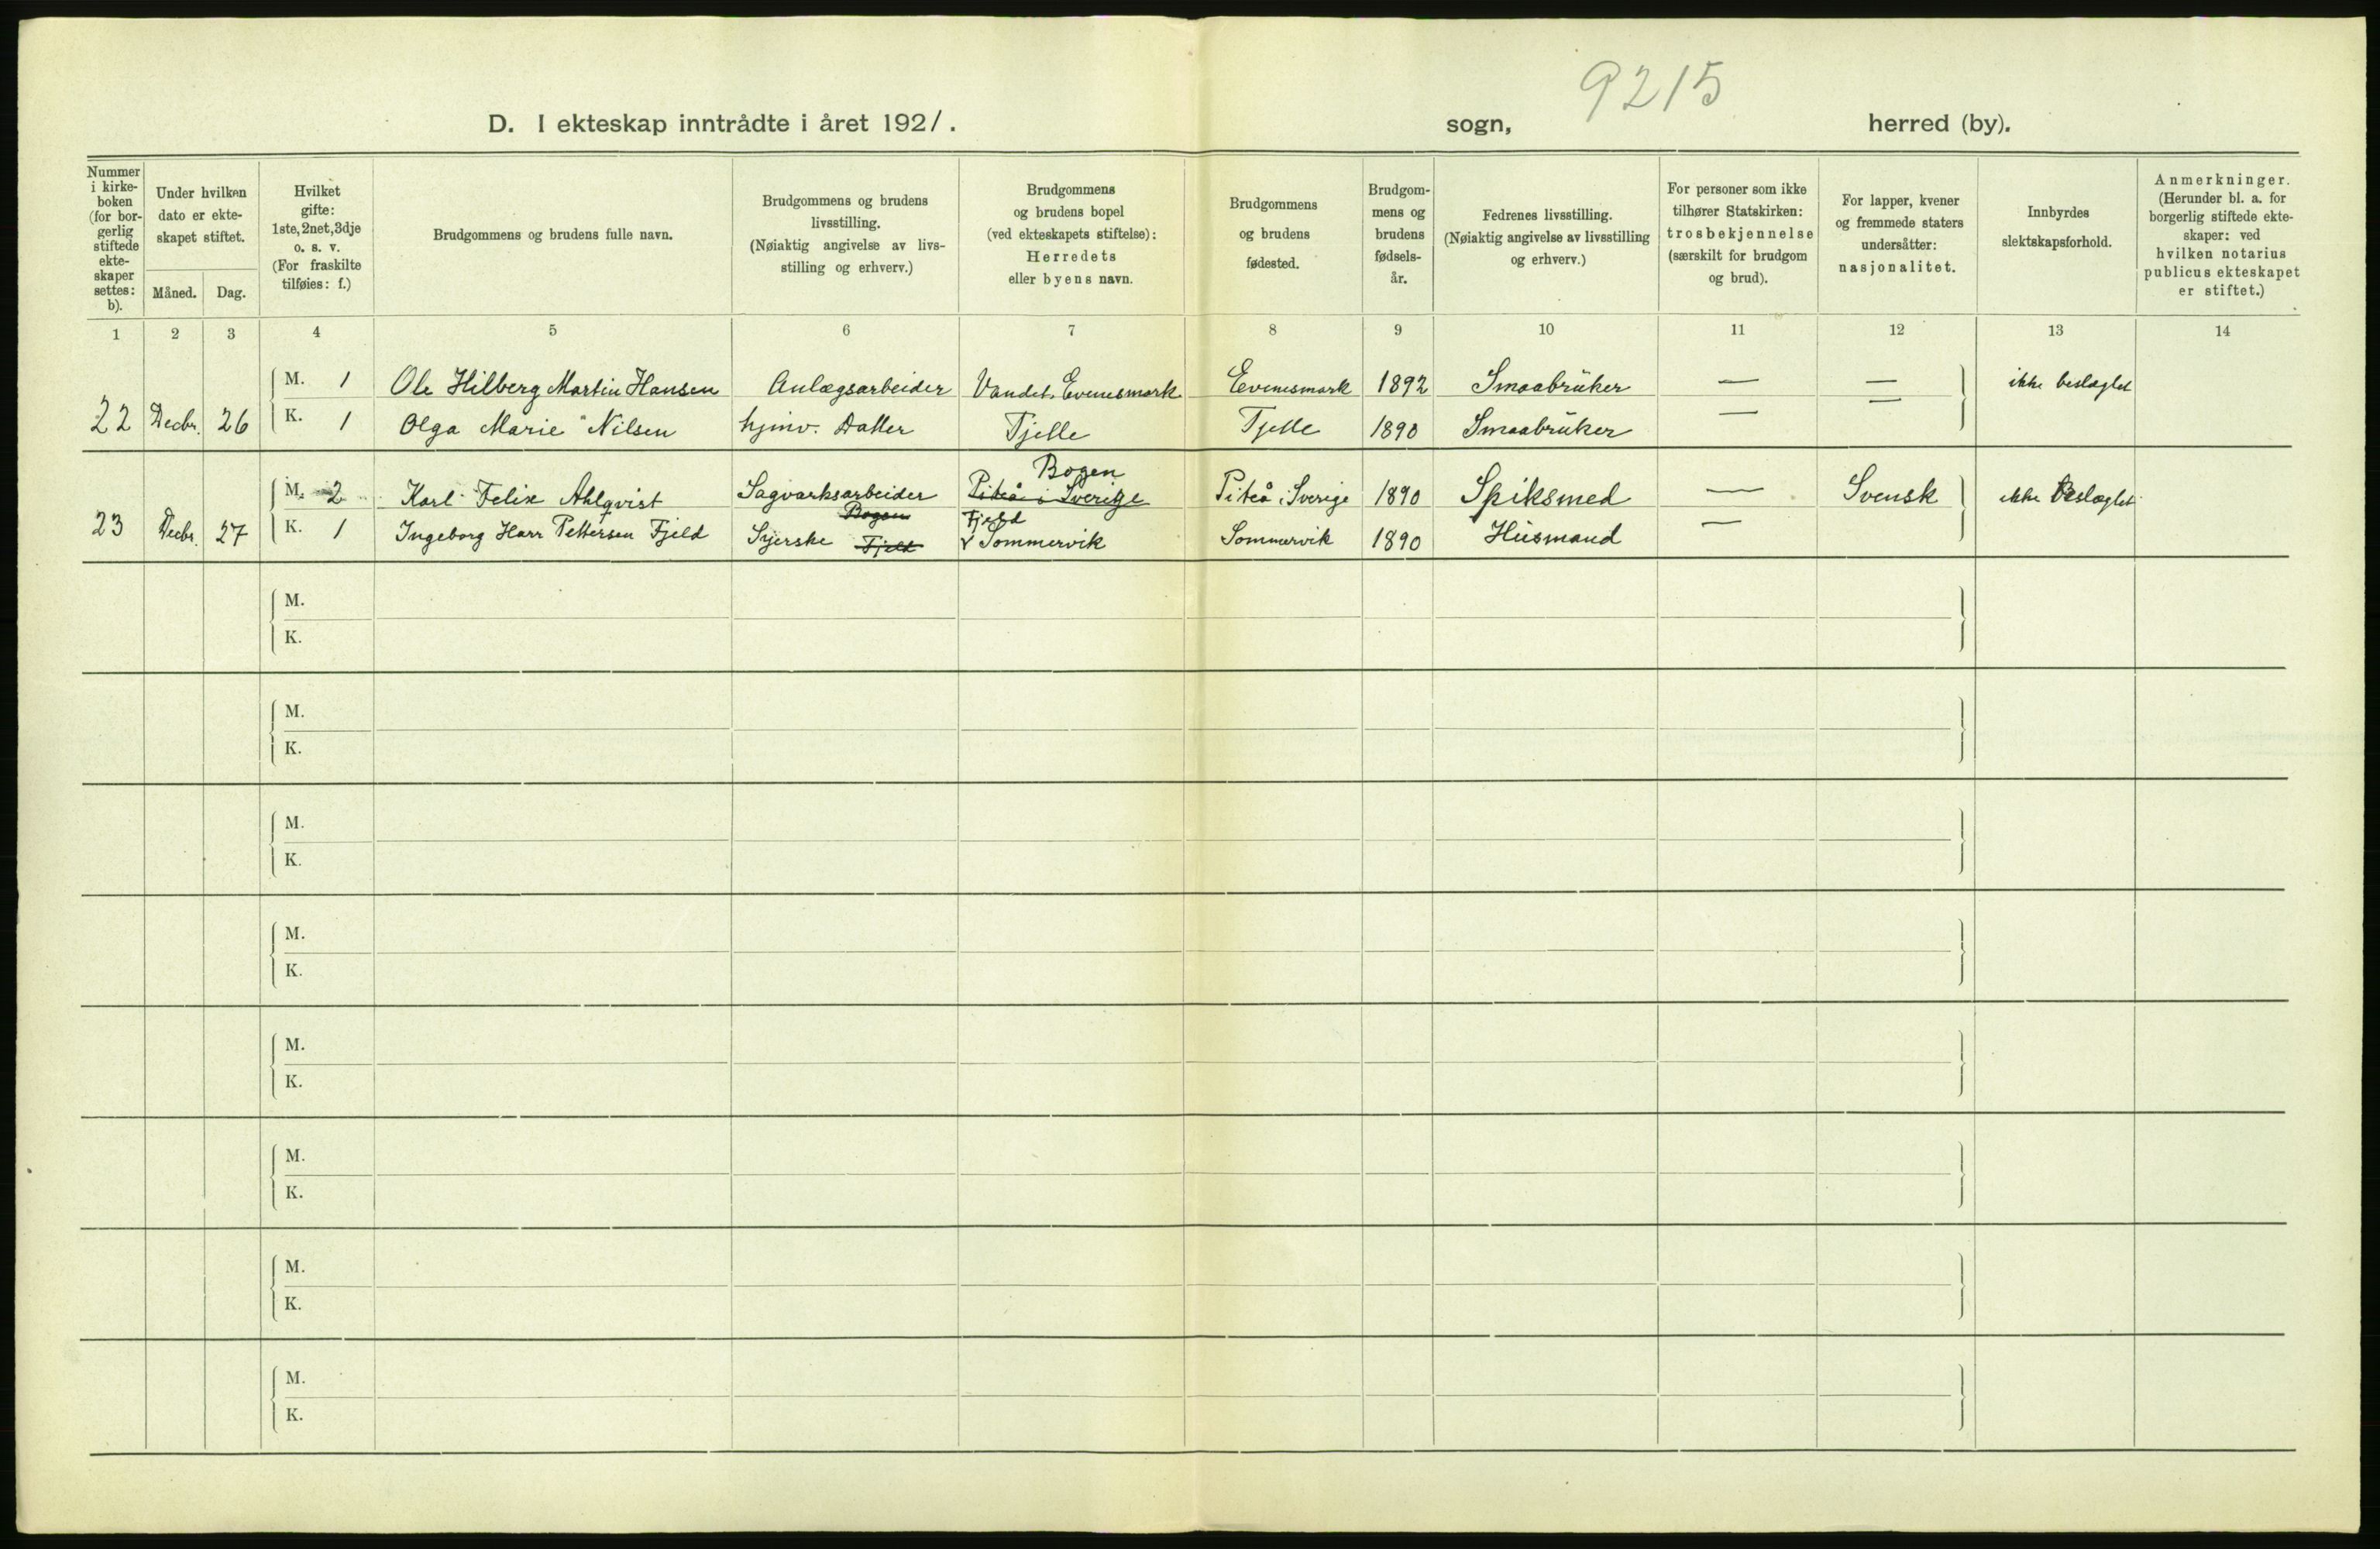 9215
D. I ekteskap inntrådte i året 1921. sogn, herred (by).
Nummer i kirke-boken (for bor-gerlig stiftede ekte-skaper settes: b).
Under hvilken dato er ekte-skapet stiftet.
Måned. Dag.
Hvilket gifte: 1ste, 2net, 3dje o. s. v. (For fraskilte tilføies: f.)
Brudgommens og brudens fulle navn.
Brudgommens og brudens livsstilling. (Nøiaktig angivelse av livs-stilling og erhverv.)
Brudgommens og brudens bopel (ved ekteskapets stiftelse): Herredets eller byens navn.
Brudgommens og brudens fødested.
Brudgom-mens og brudens fødsels-år.
Fedrenes livsstilling. (Nøiaktig angivelse av livsstilling og erhverv.)
For personer som ikke tilhører Statskirken: trosbekjennelse (særskilt for brudgom og brud).
For lapper, kvener og fremmede staters undersåtter: nasjonalitet.
Innbyrdes slektskapsforhold.
Anmerkninger. (Herunder bl. a. for borgerlig stiftede ekte-skaper: ved hvilken notarius publicus ekteskapet er stiftet.)
1 2 3 4 5 6 7 8 9 10 11 12 13 14
M. 1 Ole Hilberg Martin Hansen Anlægsarbeider Vandet, Evenesmark Evenesmark 1892 Smaabrüker — — ikke beslægtet
22 Decbr. 26 K. 1 Olga Marie Nilsen hjmv. Datter Tjelle Tjelle 1890 Smaabrüker — —
Bogen
M. 2 Karl Felix Ahlqvist Sagvarksarbeider Piteå i Sverige Piteå i Sverige 1890 Spiksmed — Svensk ikke Beslægtet
Bogen Fjeld
23 Decbr. 27 K. 1 Ingeborg Harr Pettersen Fjeld Syerske Fjeld v Sommervik Sommervik 1890 Hüsmand —
M.
K.
M.
K.
M.
K.
M.
K.
M.
K.
M.
K.
M.
K.
M.
K.